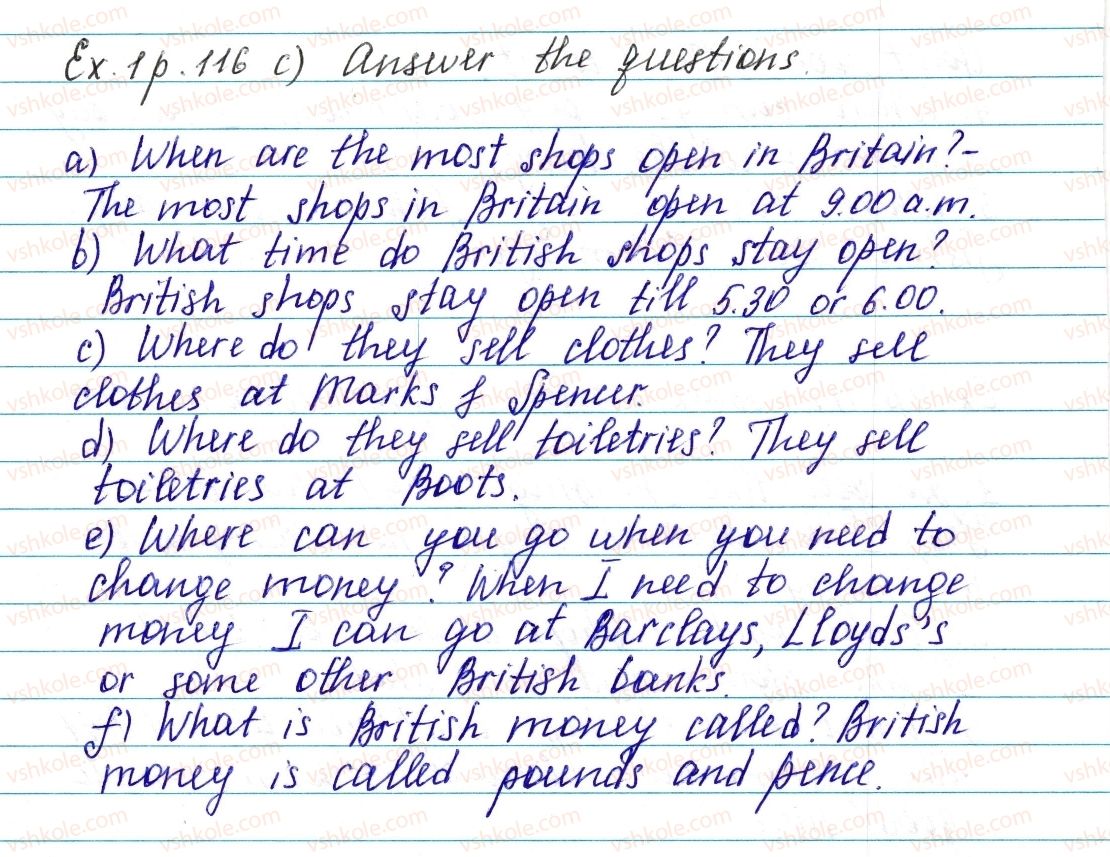 Ex. 1 p. 116 c) Answer the questions.
a) When are the most shops open in Britain? -
The most shops in Britain open at 9.00 a.m.
b) What time do British shops stay open?
British shops stay open till 5.30 or 6.00.
c) Where do they sell clothes? They sell
clothes at Marks & Spencer.
d) Where do they sell toiletries? They sell
toiletries at Boots.
e) Where can you go when you need to
change money? When I need to change
money I can go at Barclays, Lloyds's
or some other British banks.
f) What is British money called? British
money is called pounds and pence.